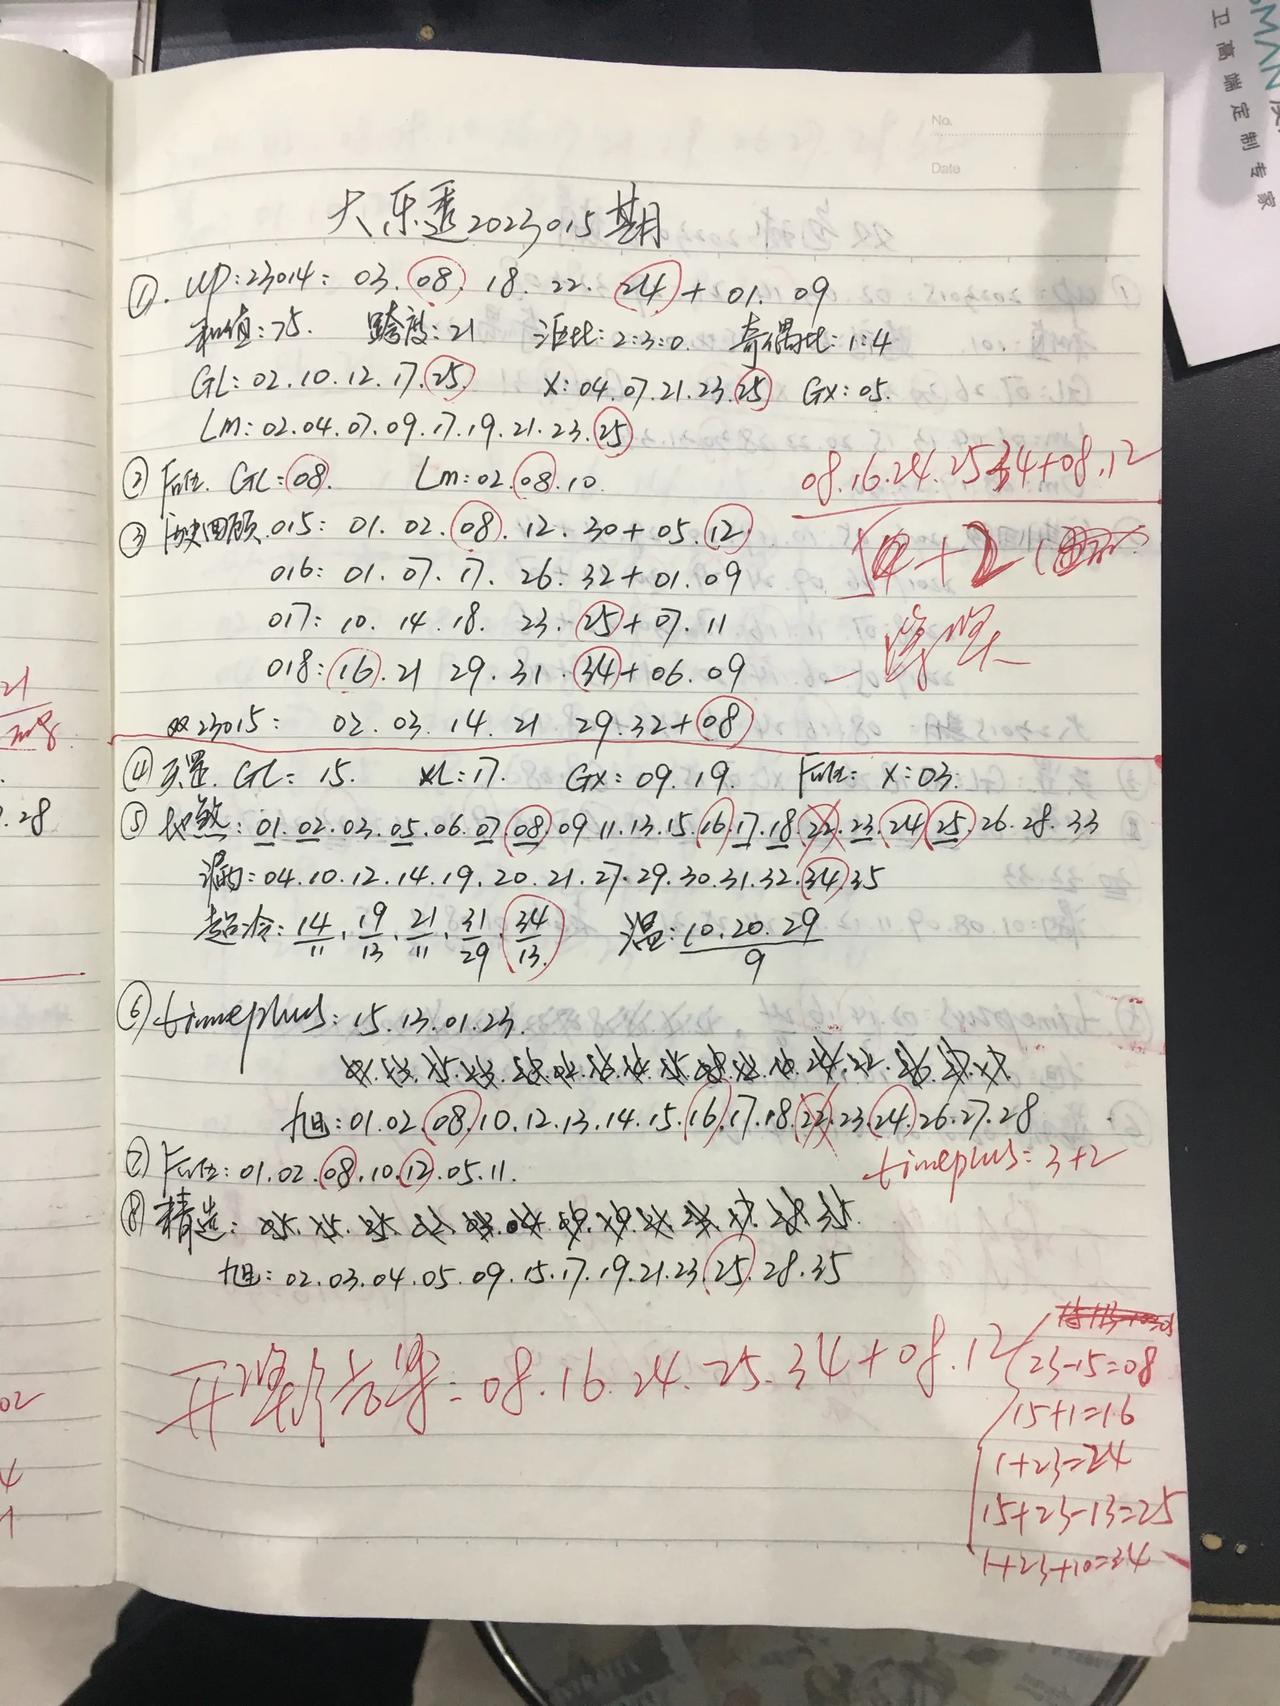 No.
Date
大乐透2023015期
①. up:23014: 03. 08. 18. 22. 24 + 01. 09
和值:75. 跨度:21 三区比:2:3:0. 奇偶比:1:4
GL:02.10.12.17.25 X:04.07.21.23.25 GX:05.
Lm:02.04.07.09.17.19.21.23.25
② 后位. GL:08. Lm:02.08.10.
08.16.24.25.34+08.12
③ 历史回顾. 015: 01. 02. 08. 12. 30 + 05. 12.
5+2
016: 01. 07. 17. 26. 32 + 01. 09
017: 10. 14. 18. 23. 25 + 07. 11
018: 16. 21 29. 31. 34 + 06. 09
双23015: 02. 03. 14. 21 29. 32 + 08
④ GL: 15. XL:17. GX:09.19. 后位: X:03.
⑤ 热: 01.02.03.05.06.07.08.09 11.13.15.16.17.18.22.23.24.25.26.28.33
漏:04.10.12.14.19.20.21.27.29.30.31.32.34.35
超冷: 14/11. 19/13. 21/11. 31/29. 34/13. 温: 10.20.29/9
⑥ timeplus: 15.13.01.23.
旭:01.02.08.10.12.13.14.15.16.17.18.22.23.24.26.27.28
timeplus: 3+2
⑦ 后位:01.02.08.10.12.05.11.
⑧ 精选: 05. 15. 25. 02. 03. 04. 09. 19. 21. 23. 17. 28. 35.
旭:02.03.04.05.09.15.17.19.21.23.25.28.35
开奖结果:08.16.24.25.34+08.12
23-15=08
15+1=16
1+23=24
15+23-13=25
1+23+10=34
21
.28
02
4
卫高端定制专家